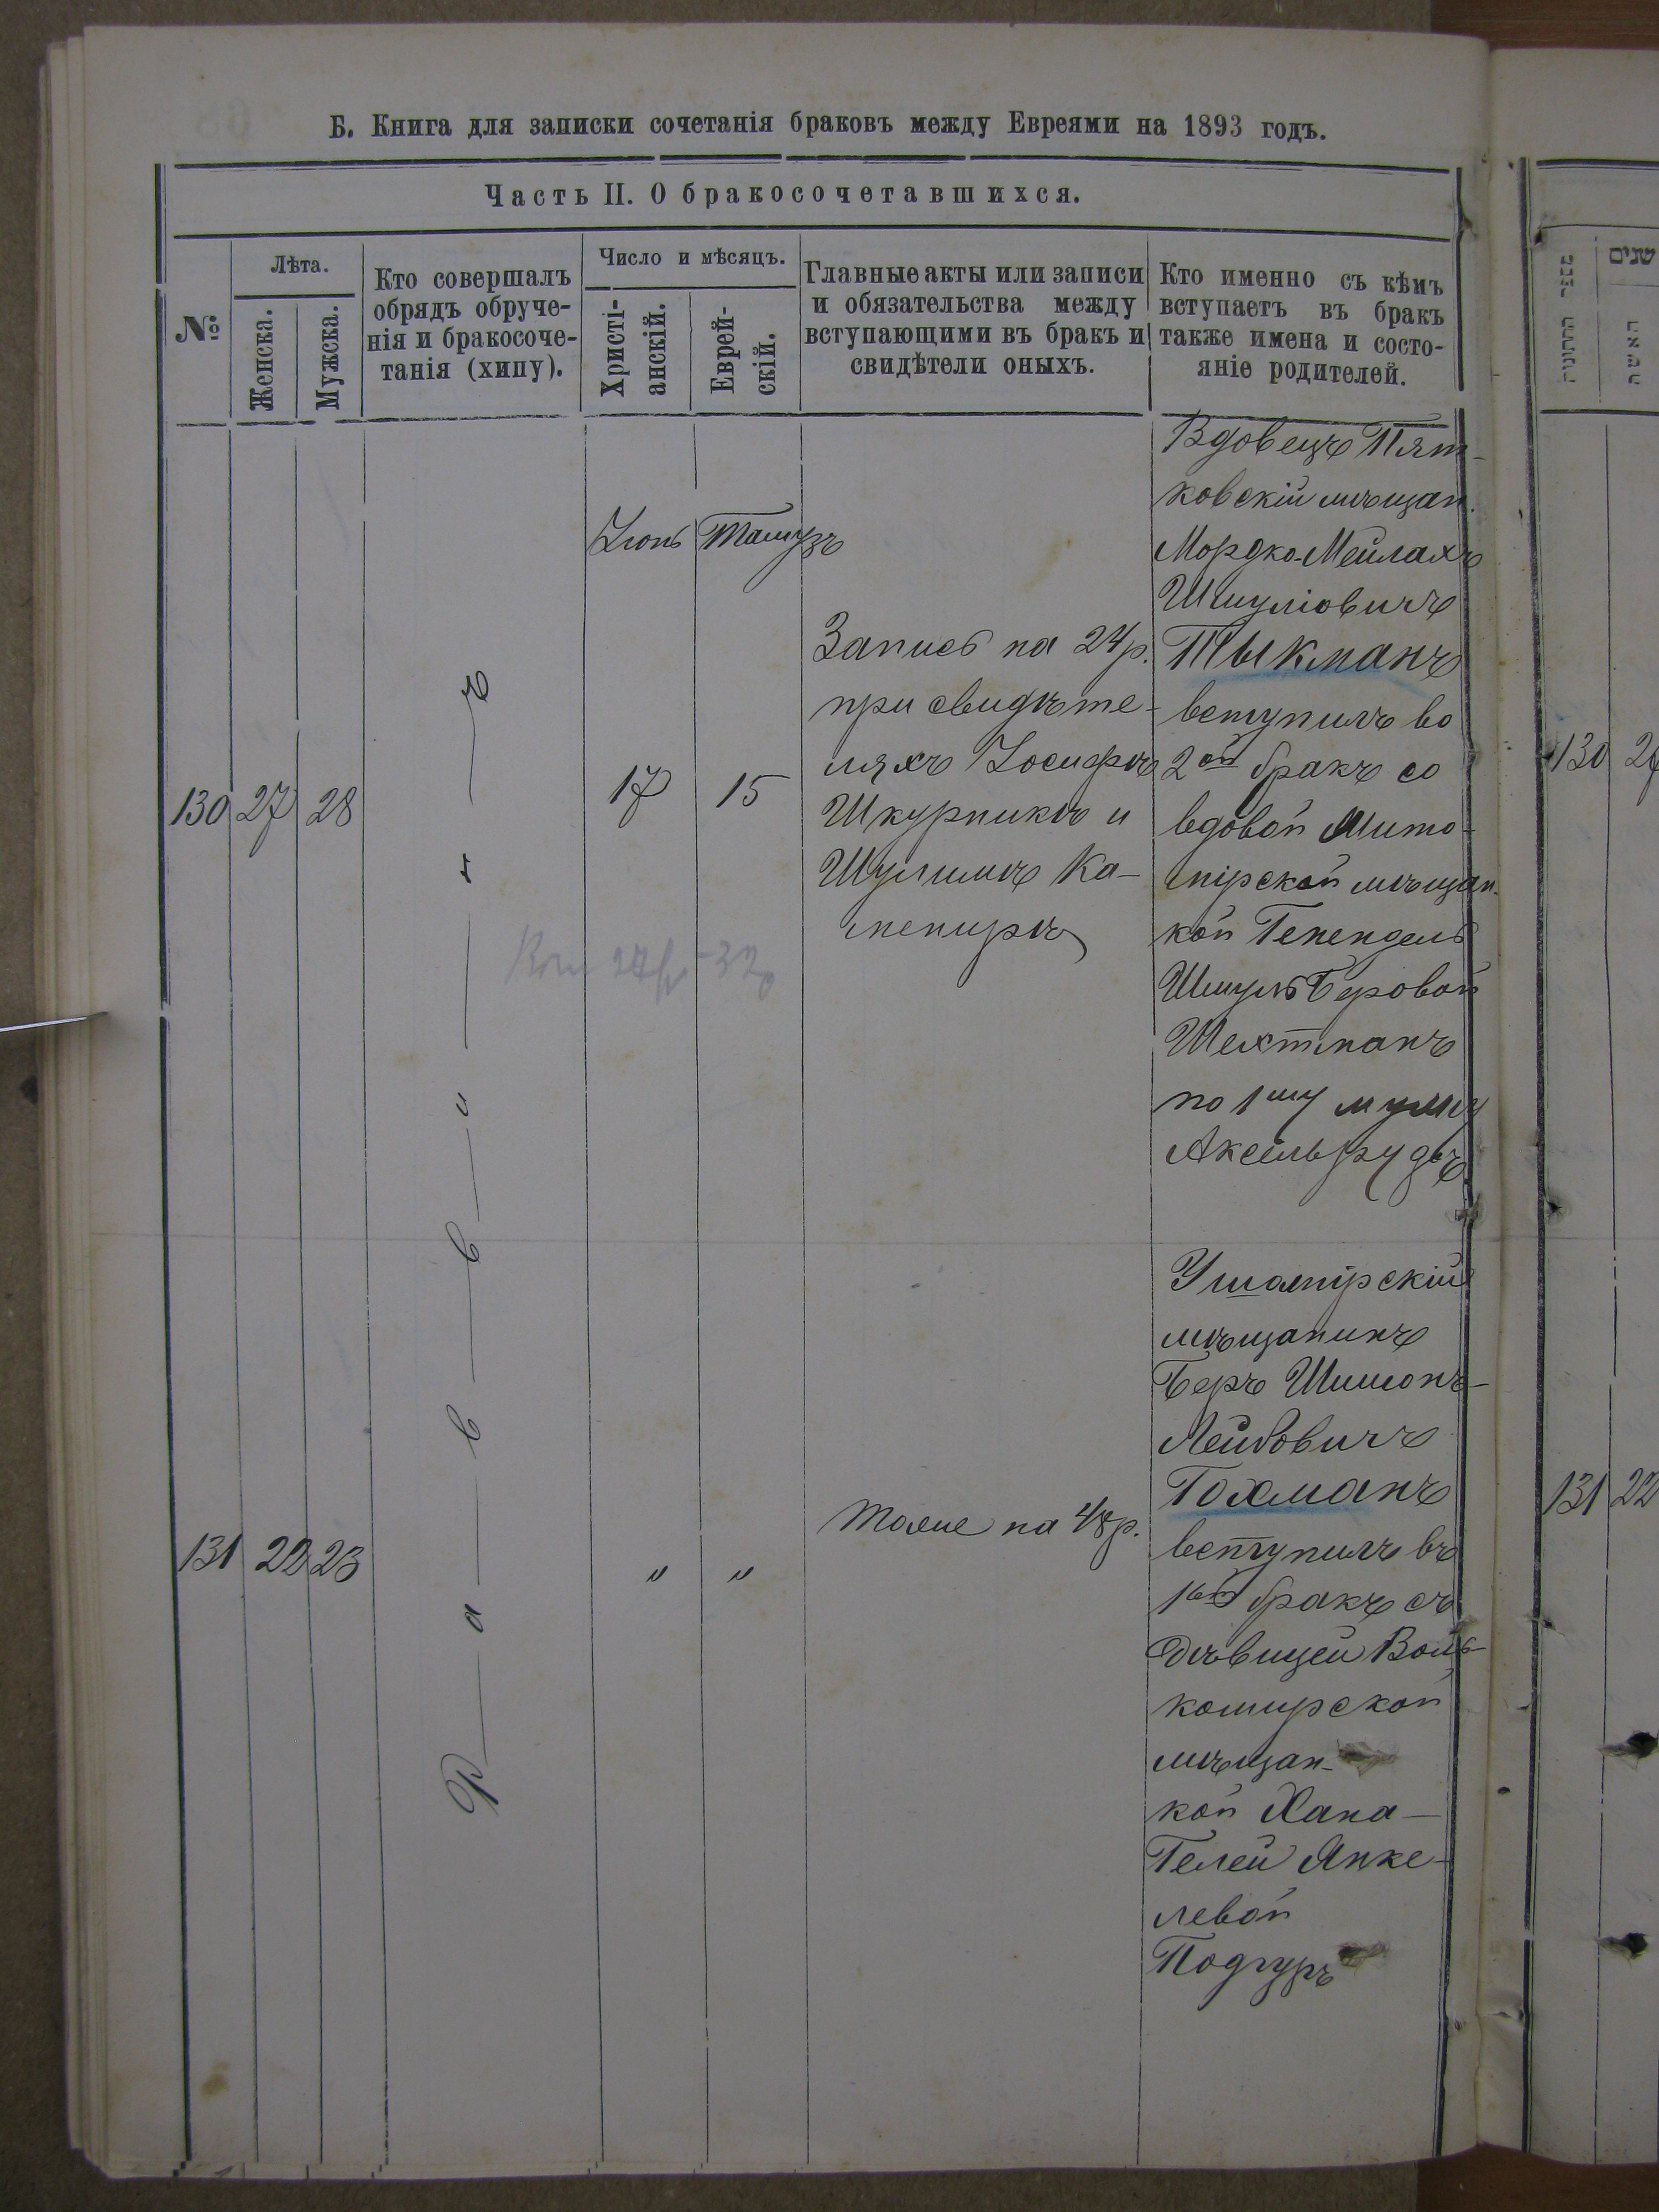 Б. Книга для записки сочетанія браковъ между Евреями на 1893 годъ.
Часть II. О бракосочетавшихся.
№
Лѣта.
Женска.
Мужска.
Кто совершалъ
обрядъ обруче-
нія и бракосоче-
танія (хипу).
Число и мѣсяцъ.
Христі-
анскій.
Еврей-
скій.
Главные акты или записи
и обязательства между
вступающими въ бракъ и
свидѣтели оныхъ.
Кто именно съ кѣмъ
вступаетъ въ бракъ
также имена и состо-
яніе родителей.
שנים
האשה
Р а в в и н ъ
130 27 28
Іюнь Тамузъ
17 15
Запись на 24 р.
при свидѣте-
ляхъ Іосифъ
Шкурникъ и
Шулимъ Ка-
Вдовецъ Пят-
ковскій мѣщан.
Мордко-Мейлахъ
Шмуліовичъ
Тыкманъ
вступилъ во
2ой бракъ со
вдовой Жито-
мірской мѣщан-
кой Генендель
Шмуль Беровой
Шехтманъ
по 1му мужу
Аксельрудъ
131 22 23
" "
Тоже на 48 р.
Ушомірскій
мѣщанинъ
Беръ Шимонъ-
Лейбовичъ
Гохманъ
вступилъ въ
1ый бракъ съ
дѣвицей Виль-
комирской
мѣщан-
кой Хана-
Гелей Янке-
левой
Подгуръ
130
131 22